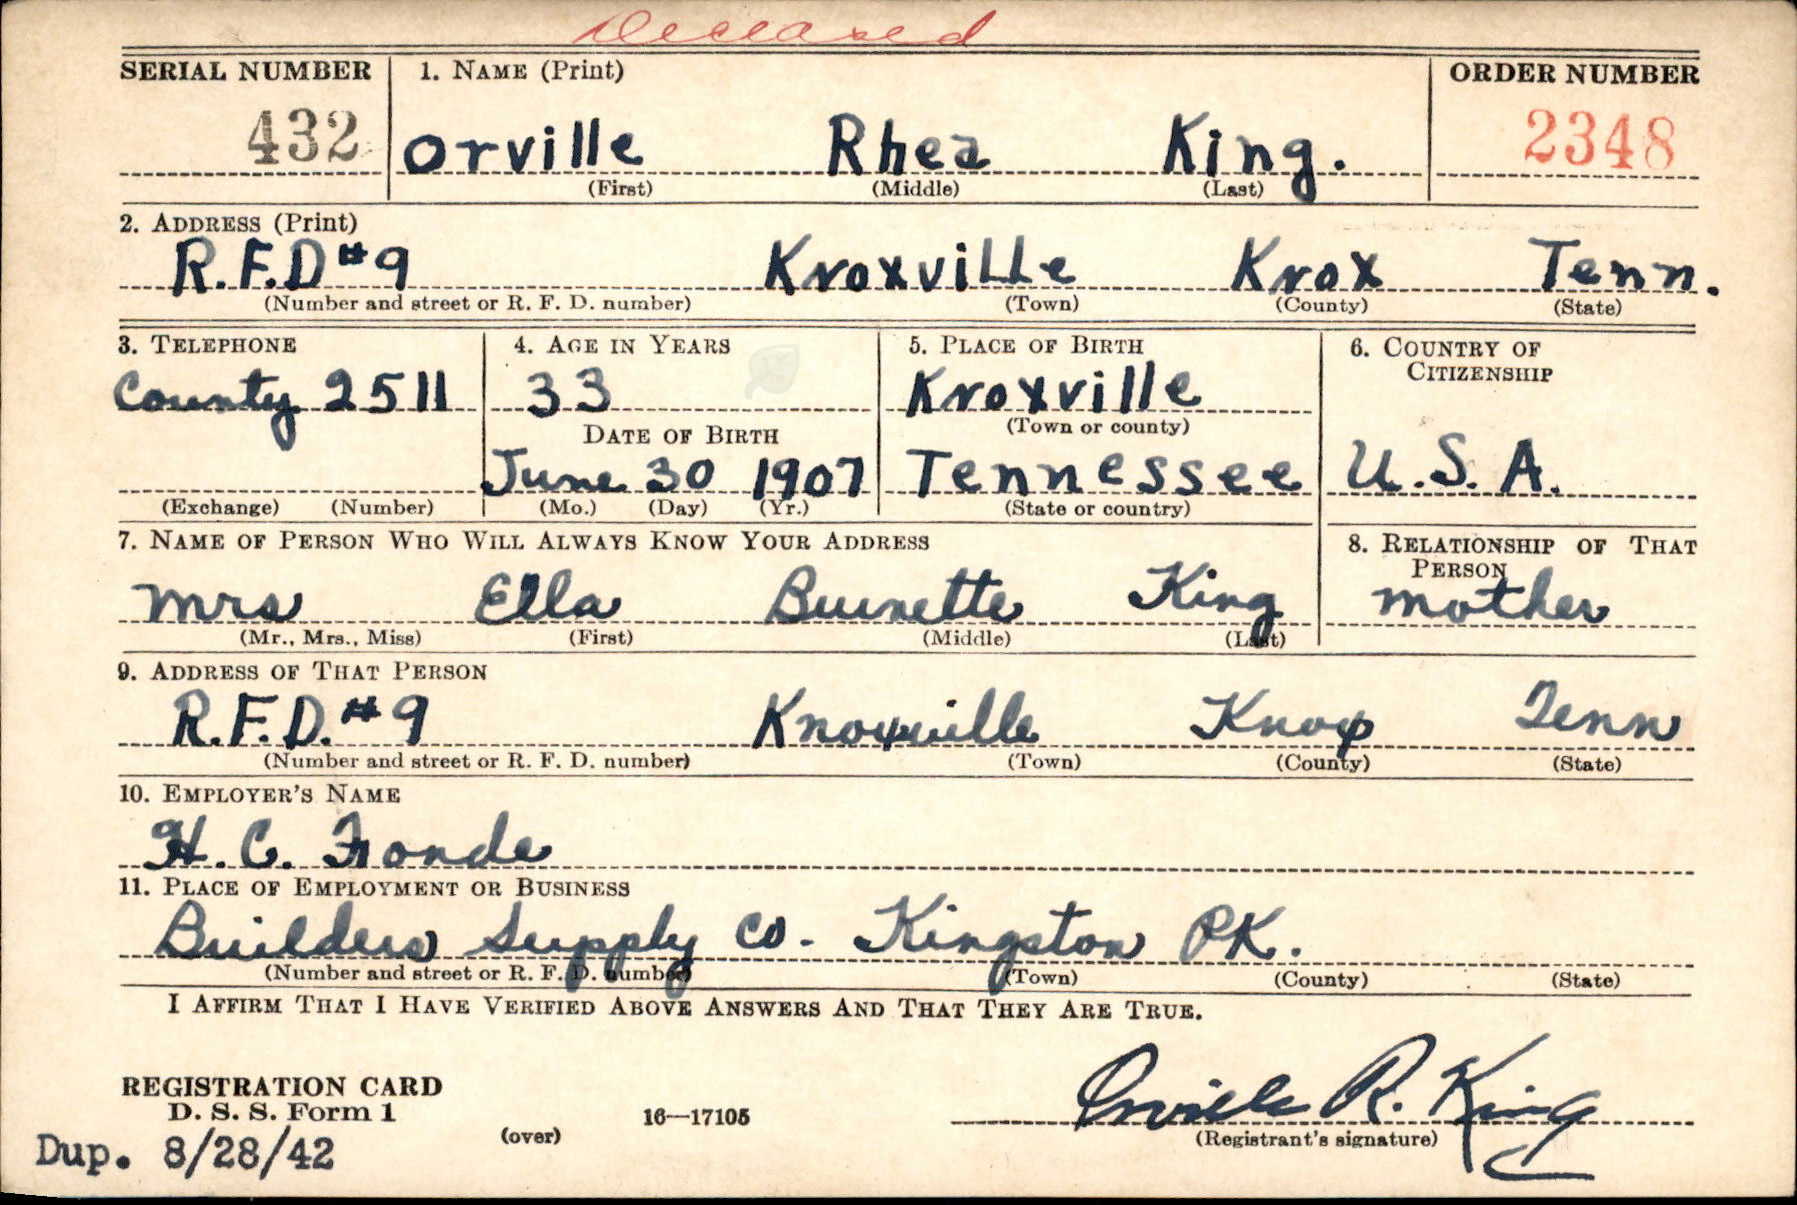 Deceased
SERIAL NUMBER 1. NAME (Print) ORDER NUMBER
432 Orville Rhea King. 2348
(First) (Middle) (Last)
2. ADDRESS (Print)
R.F.D #9 Knoxville Knox Tenn.
(Number and street or R. F. D. number) (Town) (County) (State)
3. TELEPHONE 4. AGE IN YEARS 5. PLACE OF BIRTH 6. COUNTRY OF CITIZENSHIP
County 2511 33 Knoxville
DATE OF BIRTH (Town or county)
June 30 1907 Tennessee U.S.A.
(Exchange) (Number) (Mo.) (Day) (Yr.) (State or country)
7. NAME OF PERSON WHO WILL ALWAYS KNOW YOUR ADDRESS 8. RELATIONSHIP OF THAT PERSON
Mrs Ella Burnette King mother
(Mr., Mrs., Miss) (First) (Middle) (Last)
9. ADDRESS OF THAT PERSON
R.F.D. #9 Knoxville Knox Tenn
(Number and street or R. F. D. number) (Town) (County) (State)
10. EMPLOYER'S NAME
H. C. Fonde
11. PLACE OF EMPLOYMENT OR BUSINESS
Builders Supply Co. Kingston PK.
(Number and street or R. F. D. number) (Town) (County) (State)
I AFFIRM THAT I HAVE VERIFIED ABOVE ANSWERS AND THAT THEY ARE TRUE.
REGISTRATION CARD
D. S. S. Form 1 16—17105 Orville R. King
Dup. 8/28/42 (over) (Registrant's signature)